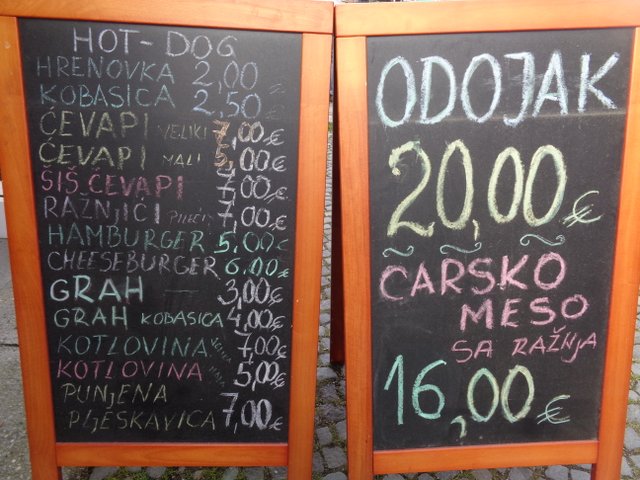 HOT-DOG
HRENOVKA 2,00
KOBASICA 2,50 €
ČEVAPI VELIKI 7,00 €
ČEVAPI MALI 5,00 €
ŠIŠ ČEVAPI 7,00 €
RAŽNJIĆI 7,00 €
HAMBURGER 5,00 €
CHEESEBURGER 6,00 €
GRAH 3,00 €
GRAH KOBASICA 4,00 €
KOTLOVINA 7,00 €
KOTLOVINA 5,00 €
PUNJENA
PLJESKAVICA 7,00 €
ODOJAK
20,00 €
ČARSKO
MESO
SA RAŽNJA
16,00 €